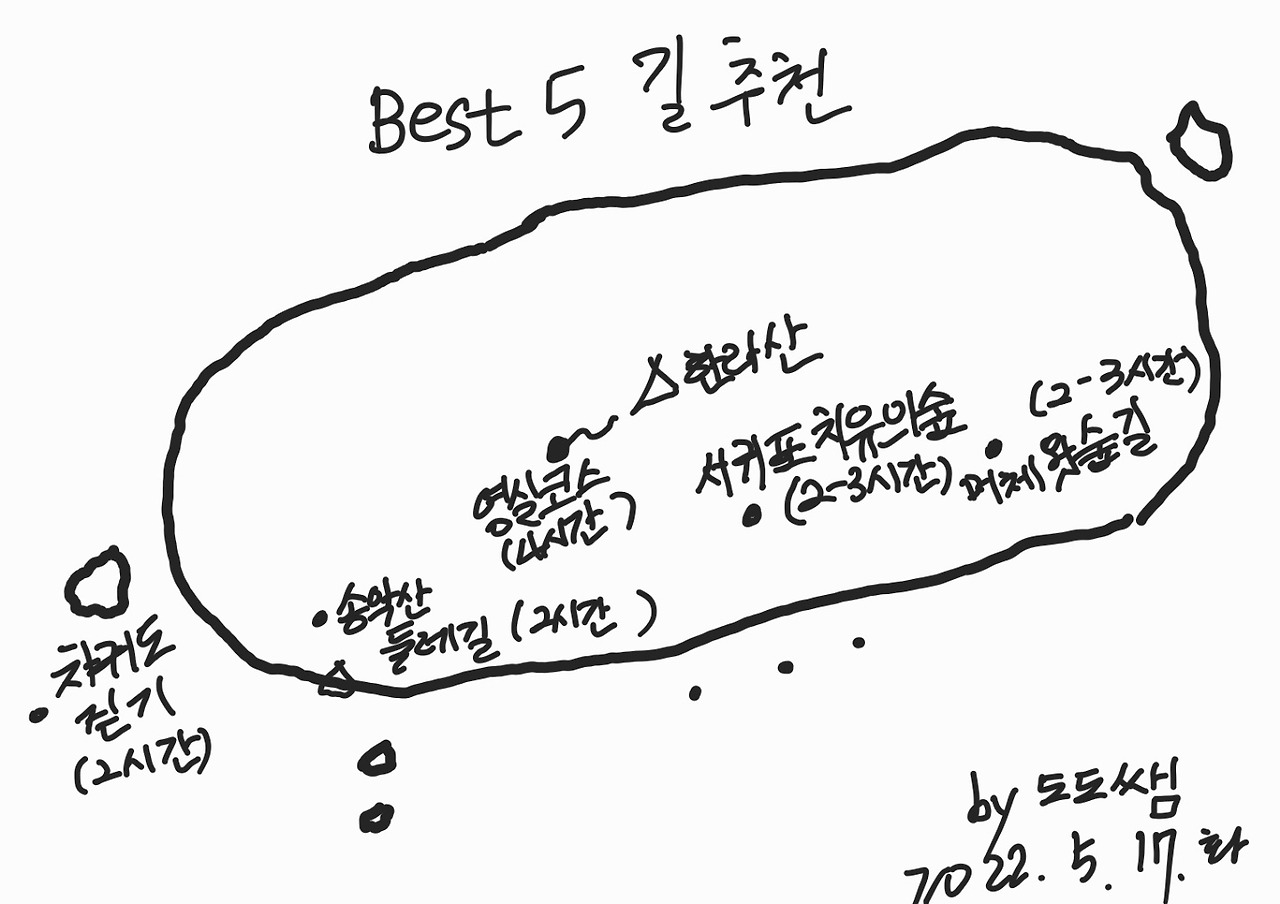 Best 5 길 추천
한라산
(2-3시간)
머체왓숲길
서귀포 치유의숲
(2-3시간)
영실코스
(4시간)
송악산
둘레길 (2시간)
차귀도
걷기
(2시간)
by 도도쌤
2022. 5. 17. 화